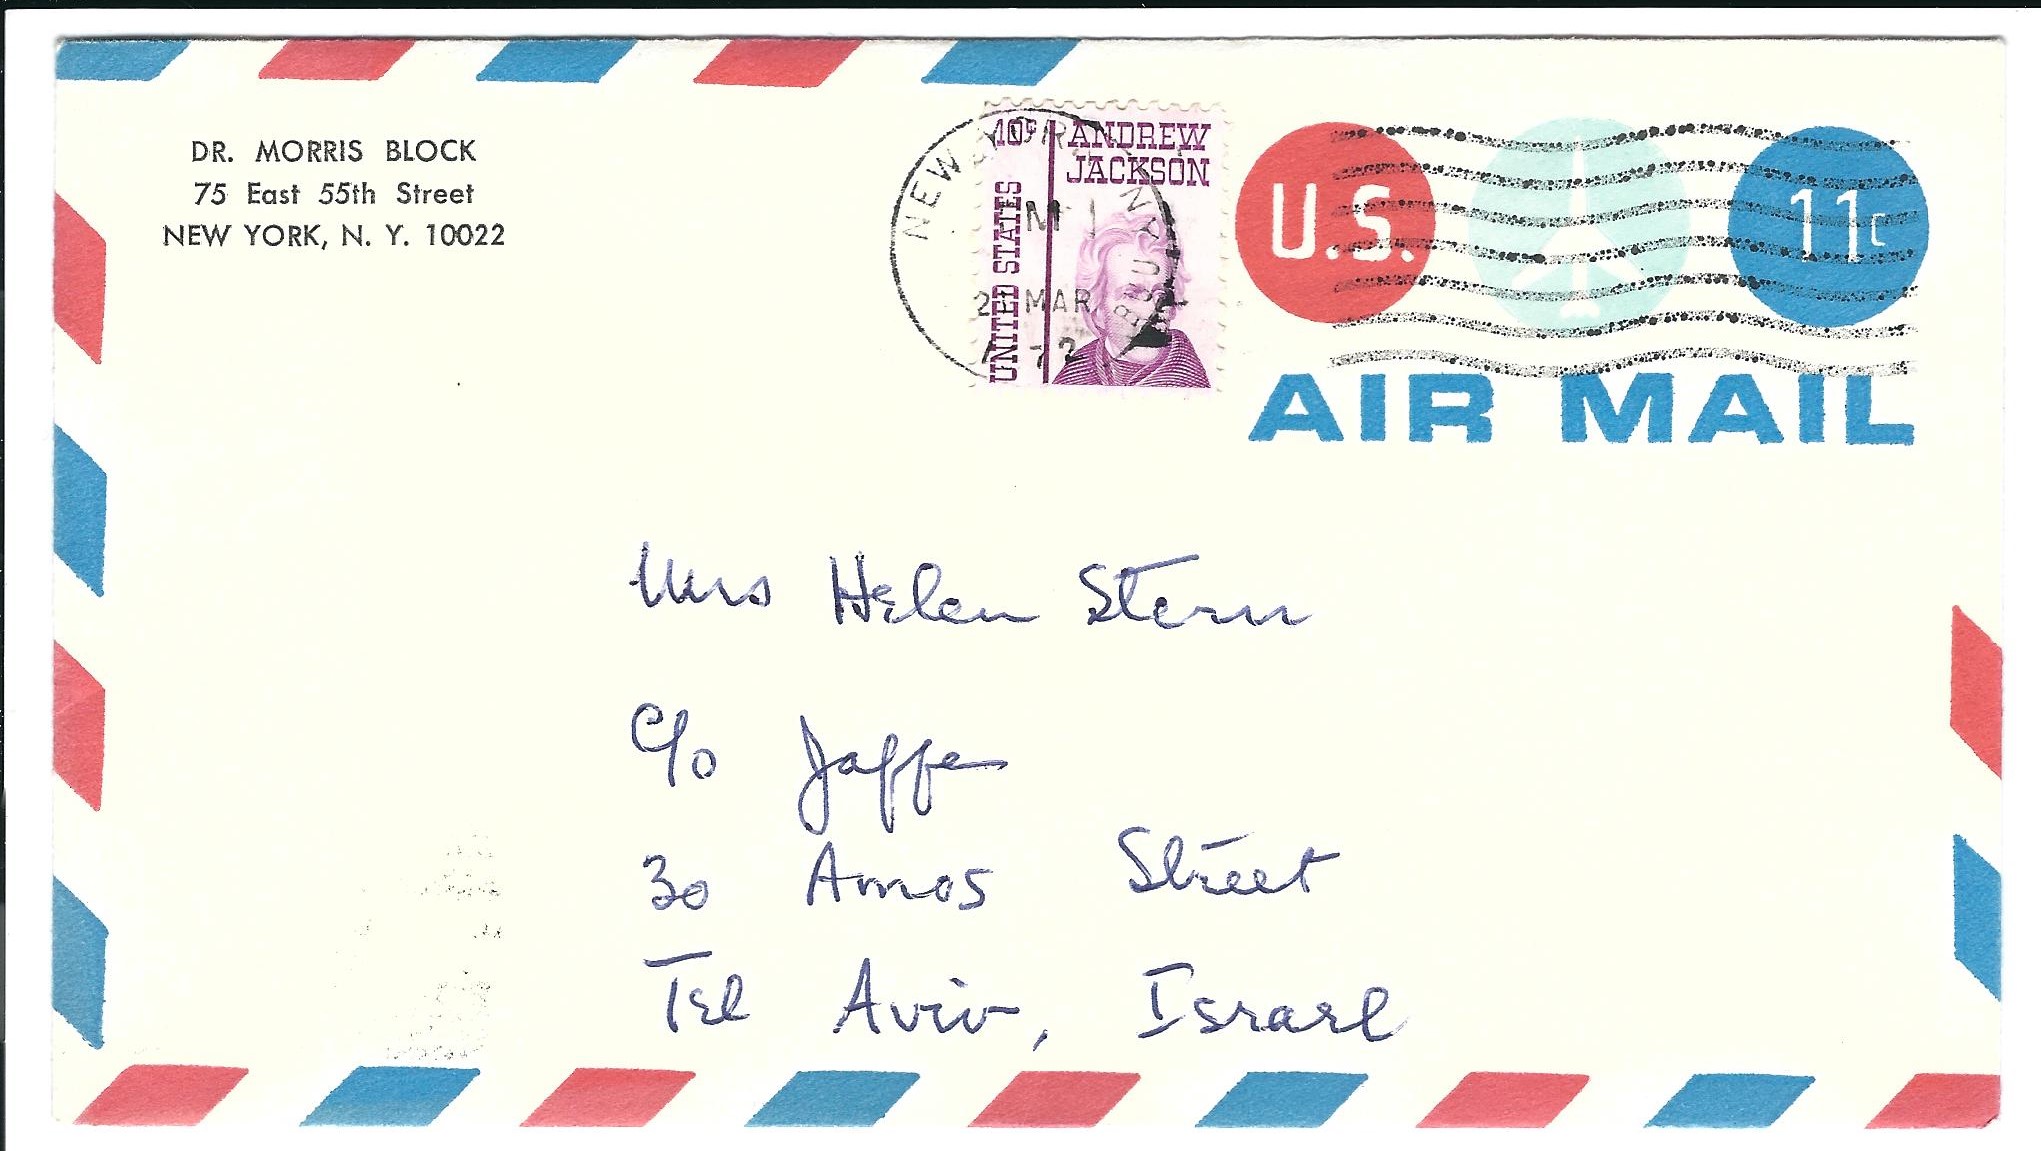 DR. MORRIS BLOCK
75 East 55th Street
NEW YORK, N. Y. 10022
NEW YORK, NY
M
2 MAR
1972
10c ANDREW
JACKSON
UNITED STATES
U.S. 11c
AIR MAIL
Mrs Helen Stern
c/o Jaffe
30 Amos Street
Tel Aviv, Israel